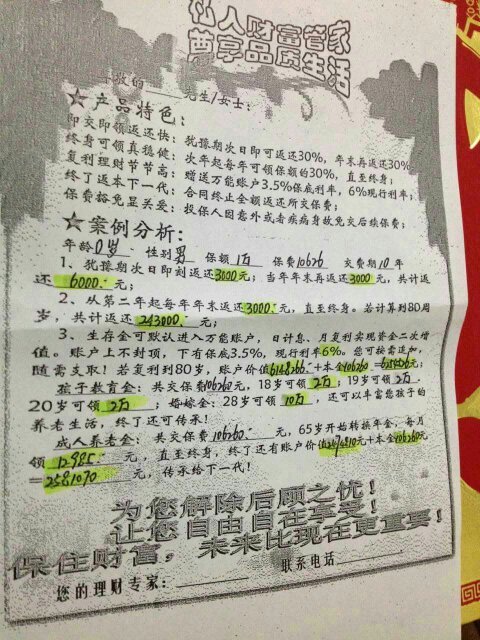 私人财富管家
尊享品质生活
敬的______先生/女士：
☆产品特色：
即交即领返还快：犹豫期次日即可返还30%，年末再返还30%
终身可领真稳健：次年起每年可领保额的30%，直至终身；
复利理财节节高：赠送万能账户3.5%保底利率，6%现行利率；
终了返本下一代：合同终止全额返还所交保费；
保费豁免显关爱：投保人因意外或者疾病身故免交后续保费；
☆案例分析：
年龄0岁 性别男 保额1万 保费10626 交费期10年
1、犹豫期次日即刻返还3000元；当年年末再返还3000元，共计返
还6000元；
2、从第二年起每年年末返还3000元，直至终身。若计算到80周
岁，共计返还243000元；
3、生存金可默认进入万能账户，日计息、月复利实现资金二次增
值。账户上不封顶，下有保底3.5%，现行利率6%。您可按需追加，
随需支取！若复利到80岁，账户价值 +本金106260=
孩子教育金：共交保费106260元，18岁可领2万；19岁可领2万
20岁可领2万；婚嫁金：28岁可领10万，还可以丰富您孩子的
养老生活，终了还可传承！
成人养老金：共交保费106260元，65岁开始转换年金，每月
领12985元，直至终身，终了还有账户价值2474810元+本金106260元
=2581070元，传承给下一代！
为您解除后顾之忧！
让您自由自在享受！
保住财富，未来比现在更重要！
您的理财专家：______ 联系电话______